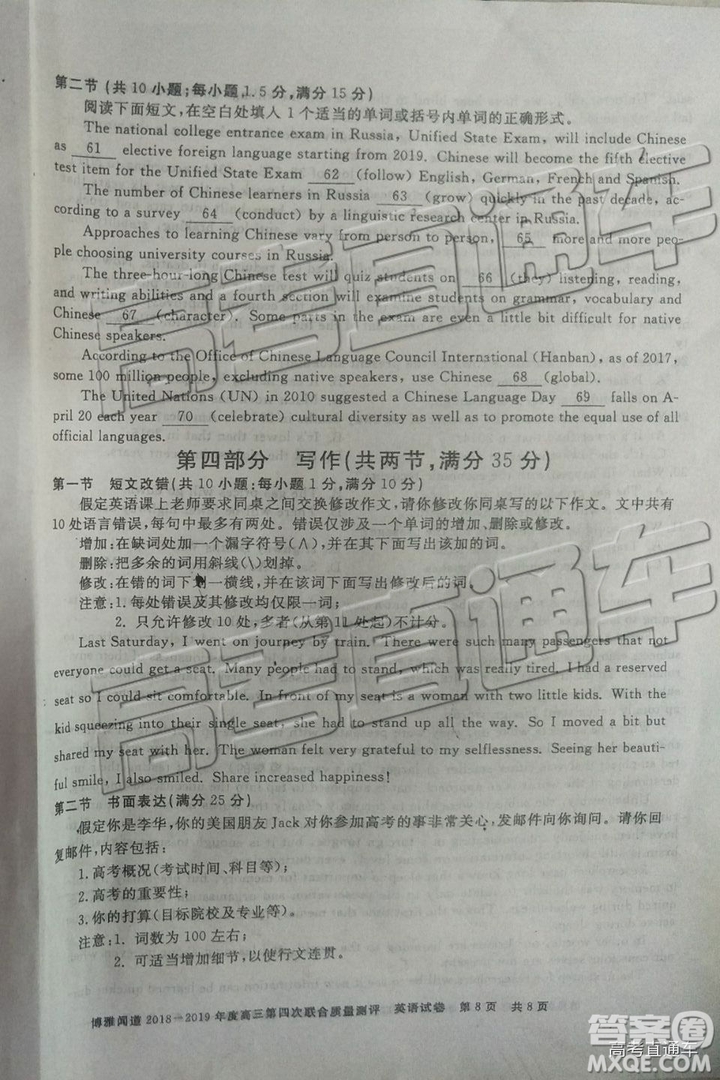 第二节 (共 10 小题;每小题 1.5 分,满分 15 分)
阅读下面短文,在空白处填人 1 个适当的单词或括号内单词的正确形式。
The national college entrance exam in Russia, Unified State Exam, will include Chinese
as 61 elective foreign language starting from 2019. Chinese will become the fifth elective
test item for the Unified State Exam 62 (follow) English, German, French and Spanish.
The number of Chinese learners in Russia 63 (grow) quickly in the past decade, ac-
cording to a survey 64 (conduct) by a linguistic research center in Russia.
Approaches to learning Chinese vary from person to person, 65 more and more peo-
ple choosing university courses in Russia.
The three-hour-long Chinese test will quiz students on 66 (they) listening, reading,
and writing abilities and a fourth section will examine students on grammar, vocabulary and
Chinese 67 (character). Some parts in the exam are even a little bit difficult for native
Chinese speakers.
According to the Office of Chinese Language Council International (Hanban), as of 2017,
some 100 million people, excluding native speakers, use Chinese 68 (global).
The United Nations (UN) in 2010 suggested a Chinese Language Day 69 falls on A-
pril 20 each year 70 (celebrate) cultural diversity as well as to promote the equal use of all
official languages.
第四部分 写作(共两节,满分 35 分)
第一节 短文改错(共 10 小题;每小题 1 分,满分 10 分)
假定英语课上老师要求同桌之间交换修改作文,请你修改你同桌写的以下作文。文中共有
10 处语言错误,每句中最多有两处。错误仅涉及一个单词的增加、删除或修改。
增加:在缺词处加一个漏字符号(∧),并在其下面写出该加的词。
删除:把多余的词用斜线(\)划掉。
修改:在错的词下划一横线,并在该词下面写出修改后的词。
注意:1. 每处错误及其修改均仅限一词;
2. 只允许修改 10 处,多者(从第 11 处起)不计分。
Last Saturday, I went on journey by train. There were such many passengers that not
everyone could get a seat. Many people had to stand, which was really tired. I had a reserved
seat so I could sit comfortable. In front of my seat is a woman with two little kids. With the
kid squeezing into their single seat, she had to stand up all the way. So I moved a bit but
shared my seat with her. The woman felt very grateful to my selflessness. Seeing her beauti-
ful smile, I also smiled. Share increased happiness!
第二节 书面表达(满分 25 分)
假定你是李华,你的美国朋友 Jack 对你参加高考的事非常关心,发邮件向你询问。请你回
复邮件,内容包括:
1. 高考概况(考试时间、科目等);
2. 高考的重要性;
3. 你的打算(目标院校及专业等)。
注意:1. 词数为 100 左右;
2. 可适当增加细节,以使行文连贯。
博雅闻道 2018-2019 年度高三第四次联合质量测评 英语试卷 第 8 页 共 8 页
高考直通车
高考直通车
答案圈
MXQE.COM
高考直通车